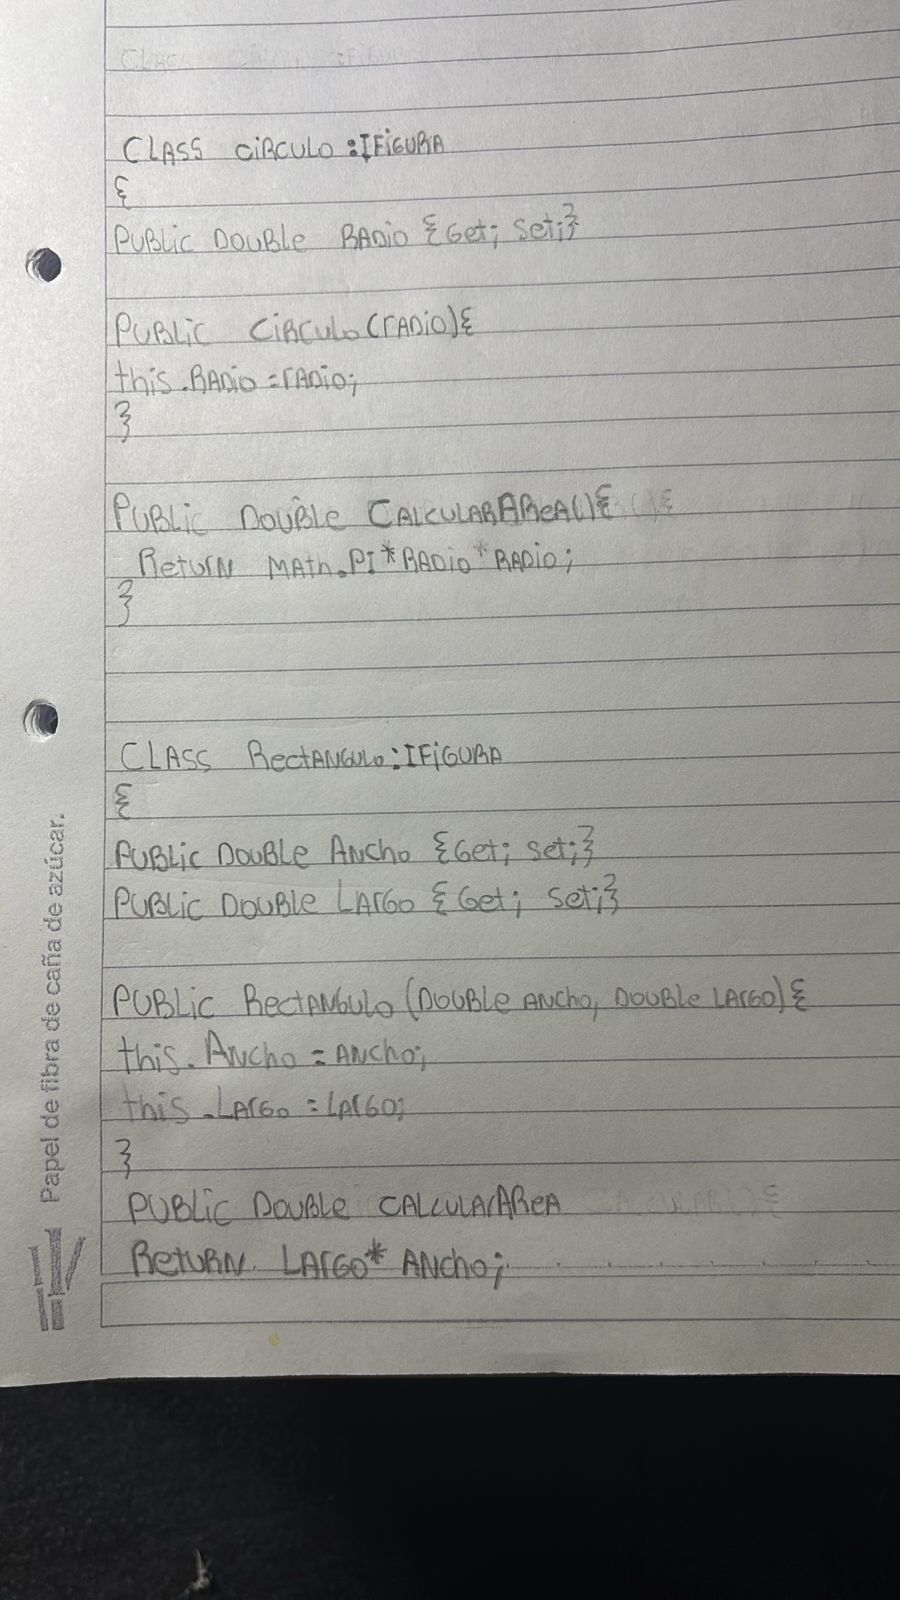 CLASS CiRCULO :IFiGURA
{
PUBLiC DOUBLe RADio {Get; Set;}
PUBLiC CiRCULO(rADiO){
this.RADio=rADio;
}
PUBLiC DOUBLe CALCULARAReA(){
ReturN MAth.PI*RADio*RADio;
}
CLASS RectANGULO:IFiGURA
{
PUBLiC DOUBLe ANCho {Get; set;}
PUBLiC DOUBLe LArGO {Get; Set;}
PUBLiC RectANGULO (DOUBLe ANCHO, DOUBLe LArGO){
this.ANCho = ANCho;
this.LArGo = LArGO;
}
PUBLiC DOUBLe CALCULArAReA
RetURN LArGO* ANCho;
Papel de fibra de caña de azúcar.